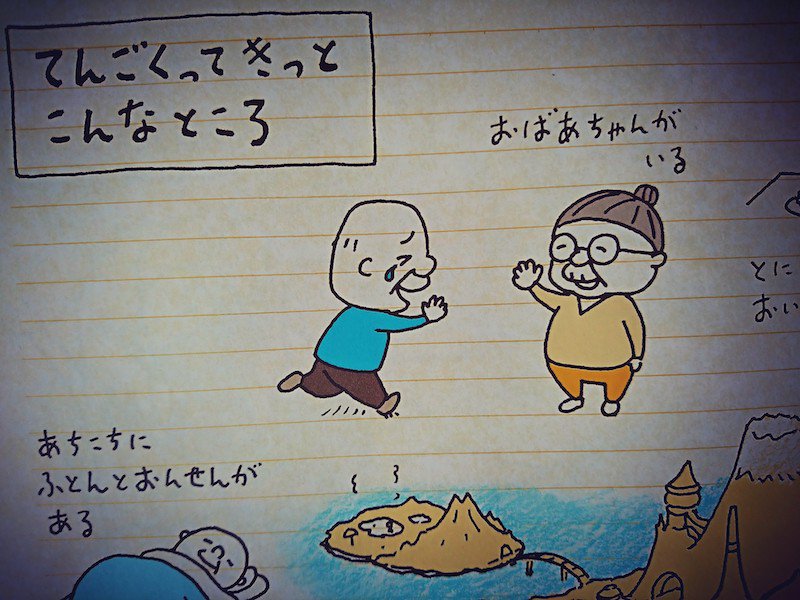 てんごくってきっと
こんなところ
おばあちゃんが
いる
とに
おい
あちこちに
ふとんとおんせんが
ある